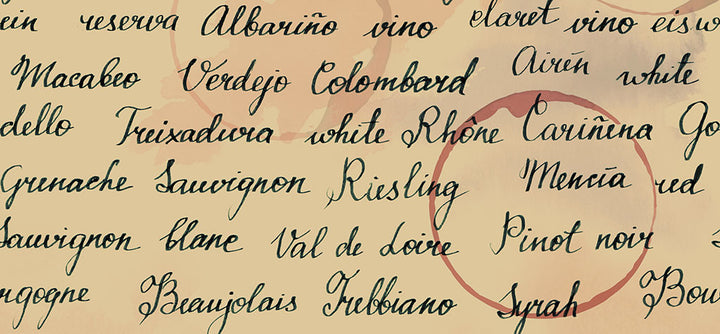 ein reserva Albariño vino claret vino eisw
Macabeo Verdejo Colombard Airén white
dello Treixadura white Rhône Cariñena Go
Grenache Sauvignon Riesling Mencía red
Sauvignon blanc Val de Loire Pinot noir
rgogne Beaujolais Trebbiano Syrah Bou